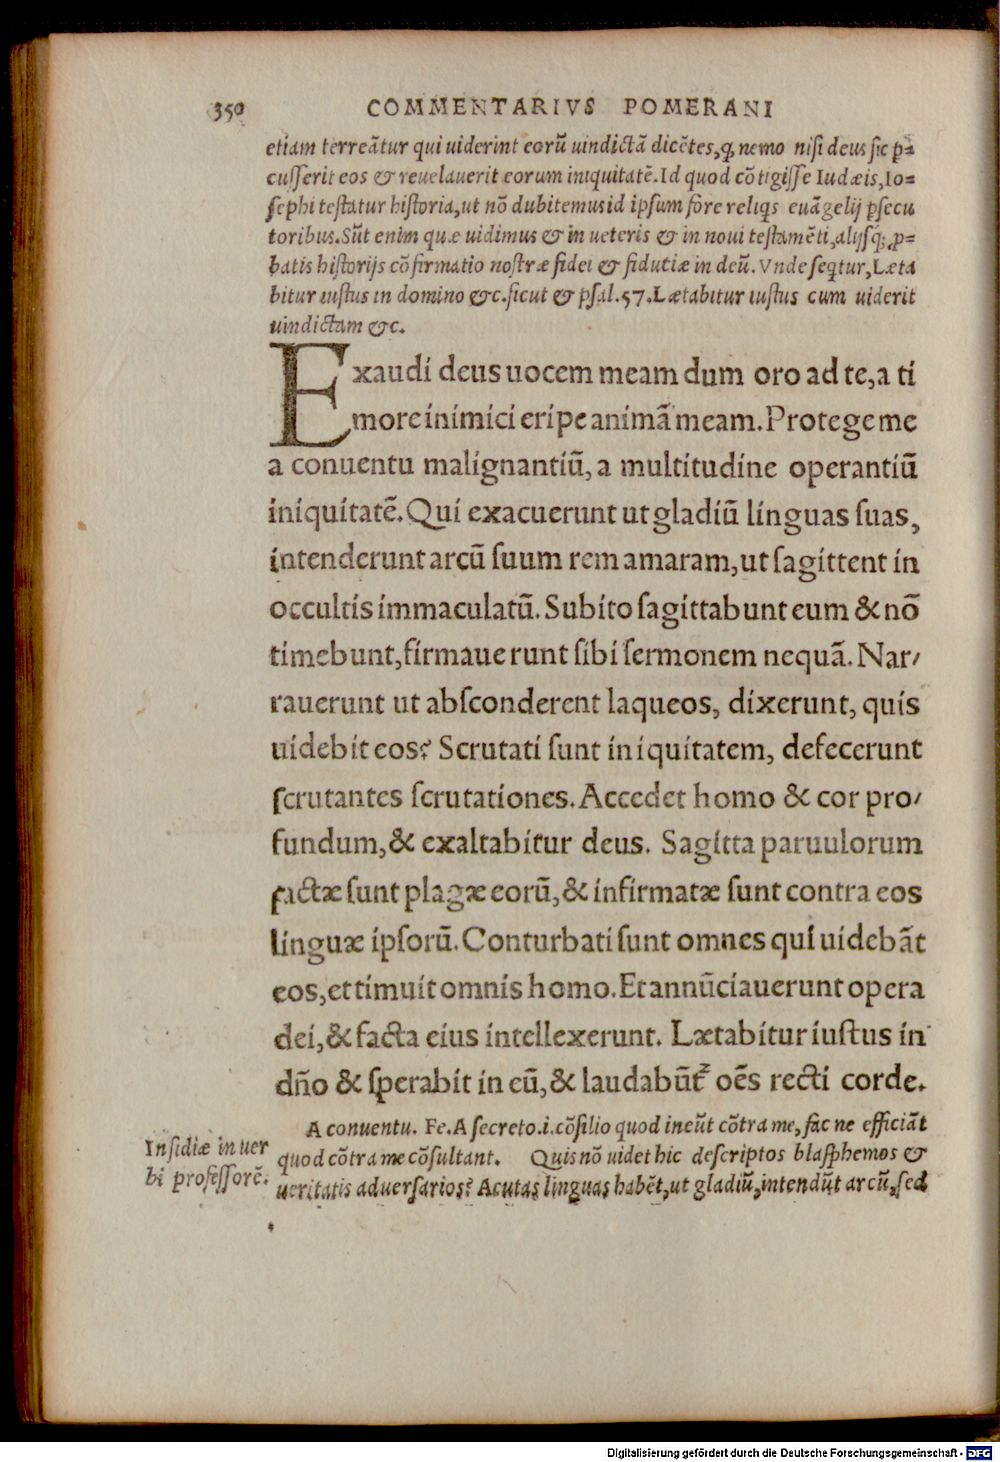 350 COMMENTARIVS POMERANI
etiam terreãtur qui uiderint eorũ uindictã dicẽtes,q, nemo nisi deus sic p=
cusserit eos & reuelauerit eorum iniquitatẽ.Id quod cõtigisse Iudæis,Io=
sephi testatur historia,ut nõ dubitemus id ipsum fore reliqs euãgelij psecu
toribus.Sũt enim quæ uidimus & in ueteris & in noui testamẽti,alijsq; p=
batis historijs cõfirmatio nostræ fidei & fidutiæ in deũ.Vnde seqtur,Læta
bitur iustus in domino &c.sicut & psal.57.Lætabitur iustus cum uiderit
uindictam &c.
Exaudi deus uocem meam dum oro ad te,a ti
more inimici eripe animã meam.Protege me
a conuentu malignantiũ,a multitudine operantiũ
iniquitatẽ.Qui exacuerunt ut gladiũ linguas suas,
intenderunt arcũ suum rem amaram,ut sagittent in
occultis immaculatũ.Subito sagittabunt eum & nõ
timebunt,firmauerunt sibi sermonem nequã.Nar/
rauerunt ut absconderent laqueos, dixerunt, quis
uidebit eos? Scrutati sunt iniquitatem, defecerunt
scrutantes scrutationes.Accedet homo & cor pro/
fundum,& exaltabitur deus. Sagitta paruulorum
factæ sunt plagæ eorũ,& infirmatæ sunt contra eos
linguæ ipsorũ.Conturbati sunt omnes qui uidebãt
eos,et timuit omnis homo.Et annũciauerunt opera
dei,& facta eius intellexerunt. Lætabitur iustus in
dño & sperabit in eũ,& laudabũt᷑ oẽs recti corde.
A conuentu. Fe.A secreto.i.cõsilio quod ineũt cõtra me,fac ne efficiãt
Insidiæ in uer
bi professorẽ.
quod cõtra me cõsultant. Quis nõ uidet hic descriptos blasphemos &
ueritatis aduersarios? Acutas linguas habẽt,ut gladiũ,intendũt arcũ,sed
Digitalisierung gefördert durch die Deutsche Forschungsgemeinschaft - DFG